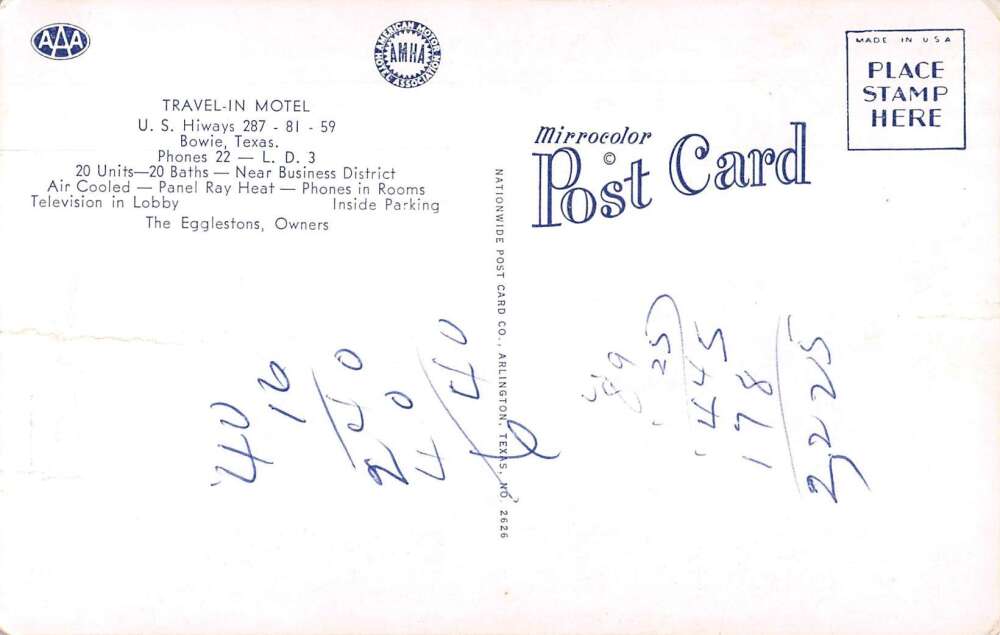 AAA
AMERICAN MOTOR HOTEL ASSOCIATION
AMHA
TRAVEL-IN MOTEL
U. S. Hiways 287 - 81 - 59
Bowie, Texas.
Phones 22 — L. D. 3
20 Units—20 Baths — Near Business District
Air Cooled — Panel Ray Heat — Phones in Rooms
Television in Lobby Inside Parking
The Egglestons, Owners
NATIONWIDE POST CARD CO., ARLINGTON, TEXAS, NO. 2626
Mirrocolor
©
Post Card
MADE IN USA
PLACE
STAMP
HERE
40
16
40
640
89
25
445
178
2225